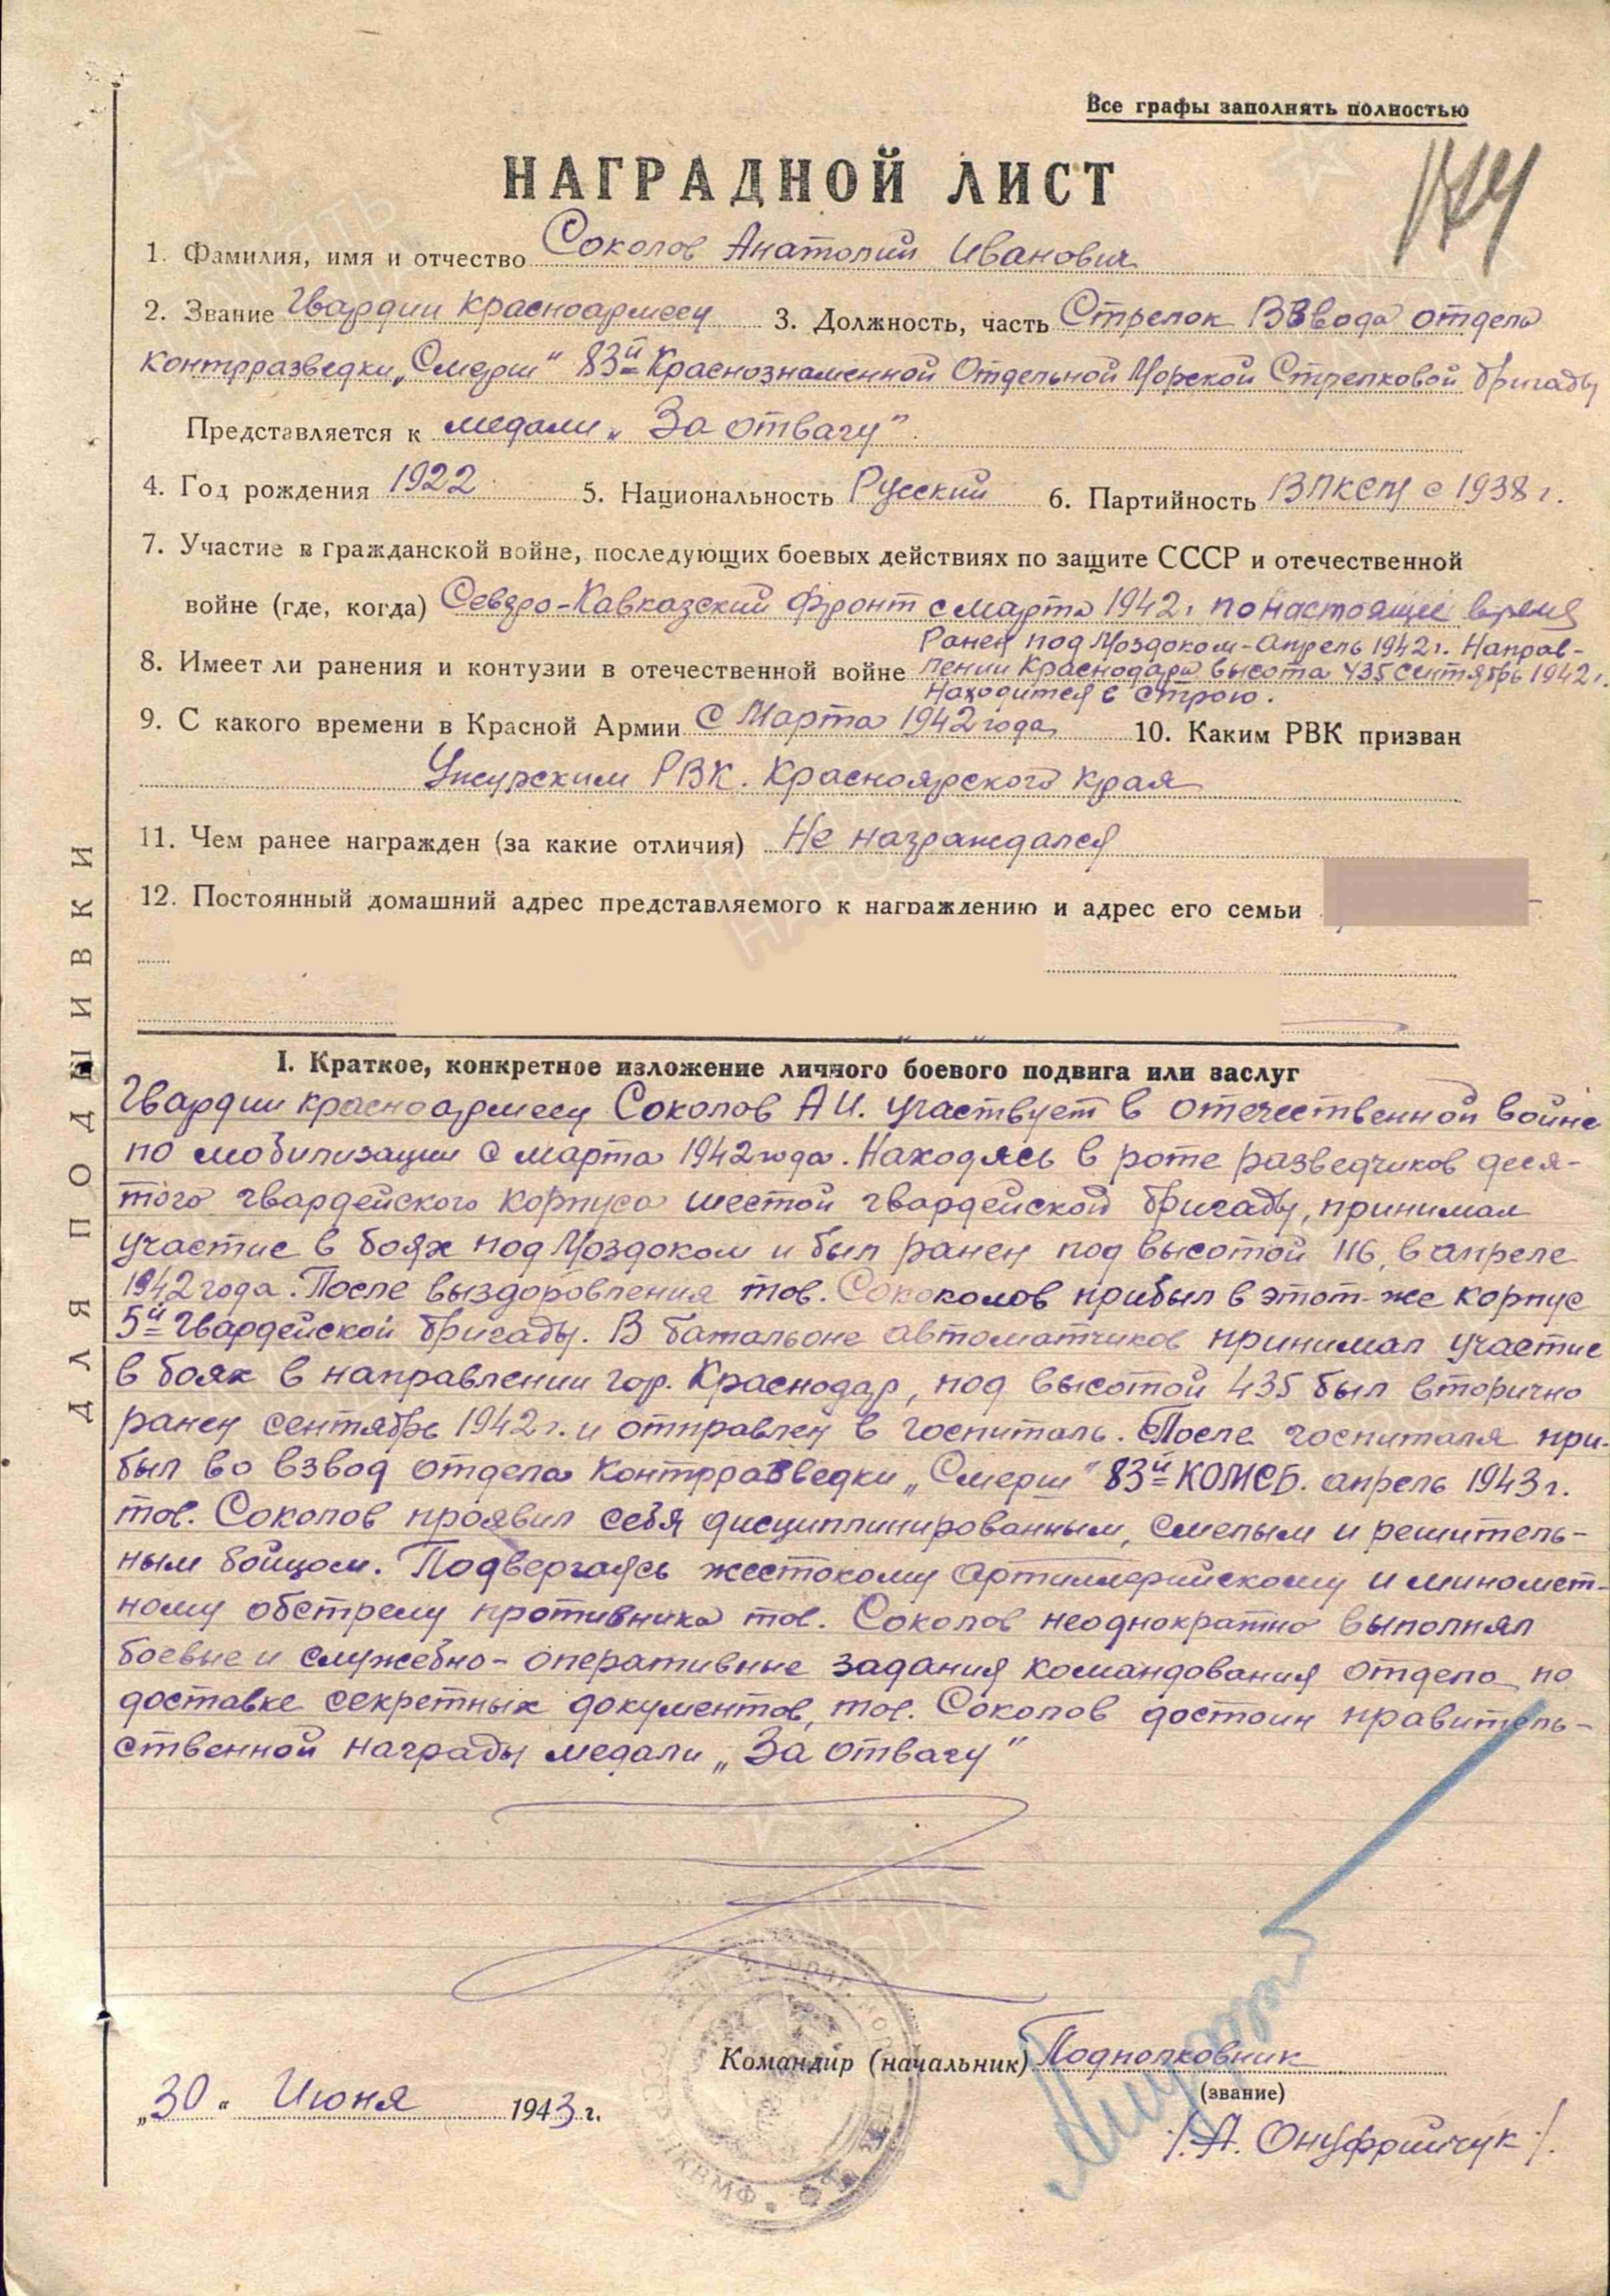 Все графы заполнять полностью
НАГРАДНОЙ ЛИСТ
1. Фамилия, имя и отчество Соколов Анатолий Иванович
2. Звание Гвардии Красноармеец 3. Должность, часть Стрелок ВЗвода отдела
Контрразведки „Смерш" 83й Краснознаменной Отдельной Морской Стрелковой бригады
Представляется к медали „За отвагу".
4. Год рождения 1922 5. Национальность Русский 6. Партийность ВЛКСМ с 1938 г.
7. Участие в гражданской войне, последующих боевых действиях по защите СССР и отечественной
войне (где, когда) Северо-Кавказский фронт с марта 1942 г. по настоящее время
Ранен под Моздоком - Апрель 1942 г. Направ-
8. Имеет ли ранения и контузии в отечественной войне лении Краснодара высота 435 сентябрь 1942 г.
Находится в строю.
9. С какого времени в Красной Армии С Марта 1942 года 10. Каким РВК призван
Ужурским РВК. Красноярского края
11. Чем ранее награжден (за какие отличия) Не награждался
12. Постоянный домашний адрес представляемого к награждению и адрес его семьи
I. Краткое, конкретное изложение личного боевого подвига или заслуг
Гвардии красноармеец Соколов А И. участвует в отечественной войне
по мобилизации с марта 1942 года. Находясь в роте разведчиков деся-
того гвардейского корпуса шестой гвардейской бригады, принимал
участие в боях под Моздоком и был ранен под высотой 116, в апреле
1942 года. После выздоровления тов. Сококолов прибыл в этот-же корпус
5й Гвардейской бригады. В батальоне автоматчиков принимал участие
в боях в направлении гор. Краснодар, под высотой 435 был вторично
ранен сентябрь 1942 г. и отправлен в госпиталь. После госпиталя при-
был во взвод отдела контрразведки „Смерш" 83й КОМСБ. апрель 1943 г.
тов. Соколов проявил себя дисциплинированным, смелым и решитель-
ным бойцом. Подвергаясь жестокому артиллерийскому и миномет-
ному обстрелу противника тов. Соколов неоднократно выполнял
боевые и служебно-оперативные задания командования отдела по
доставке секретных документов, тов. Соколов достоин правитель-
ственной награды медали „За отвагу"
Командир (начальник) Подполковник
(звание)
„30" Июня 1943 г.
/А. Онуфрийчук/.
ДЛЯ ПОДШИВКИ